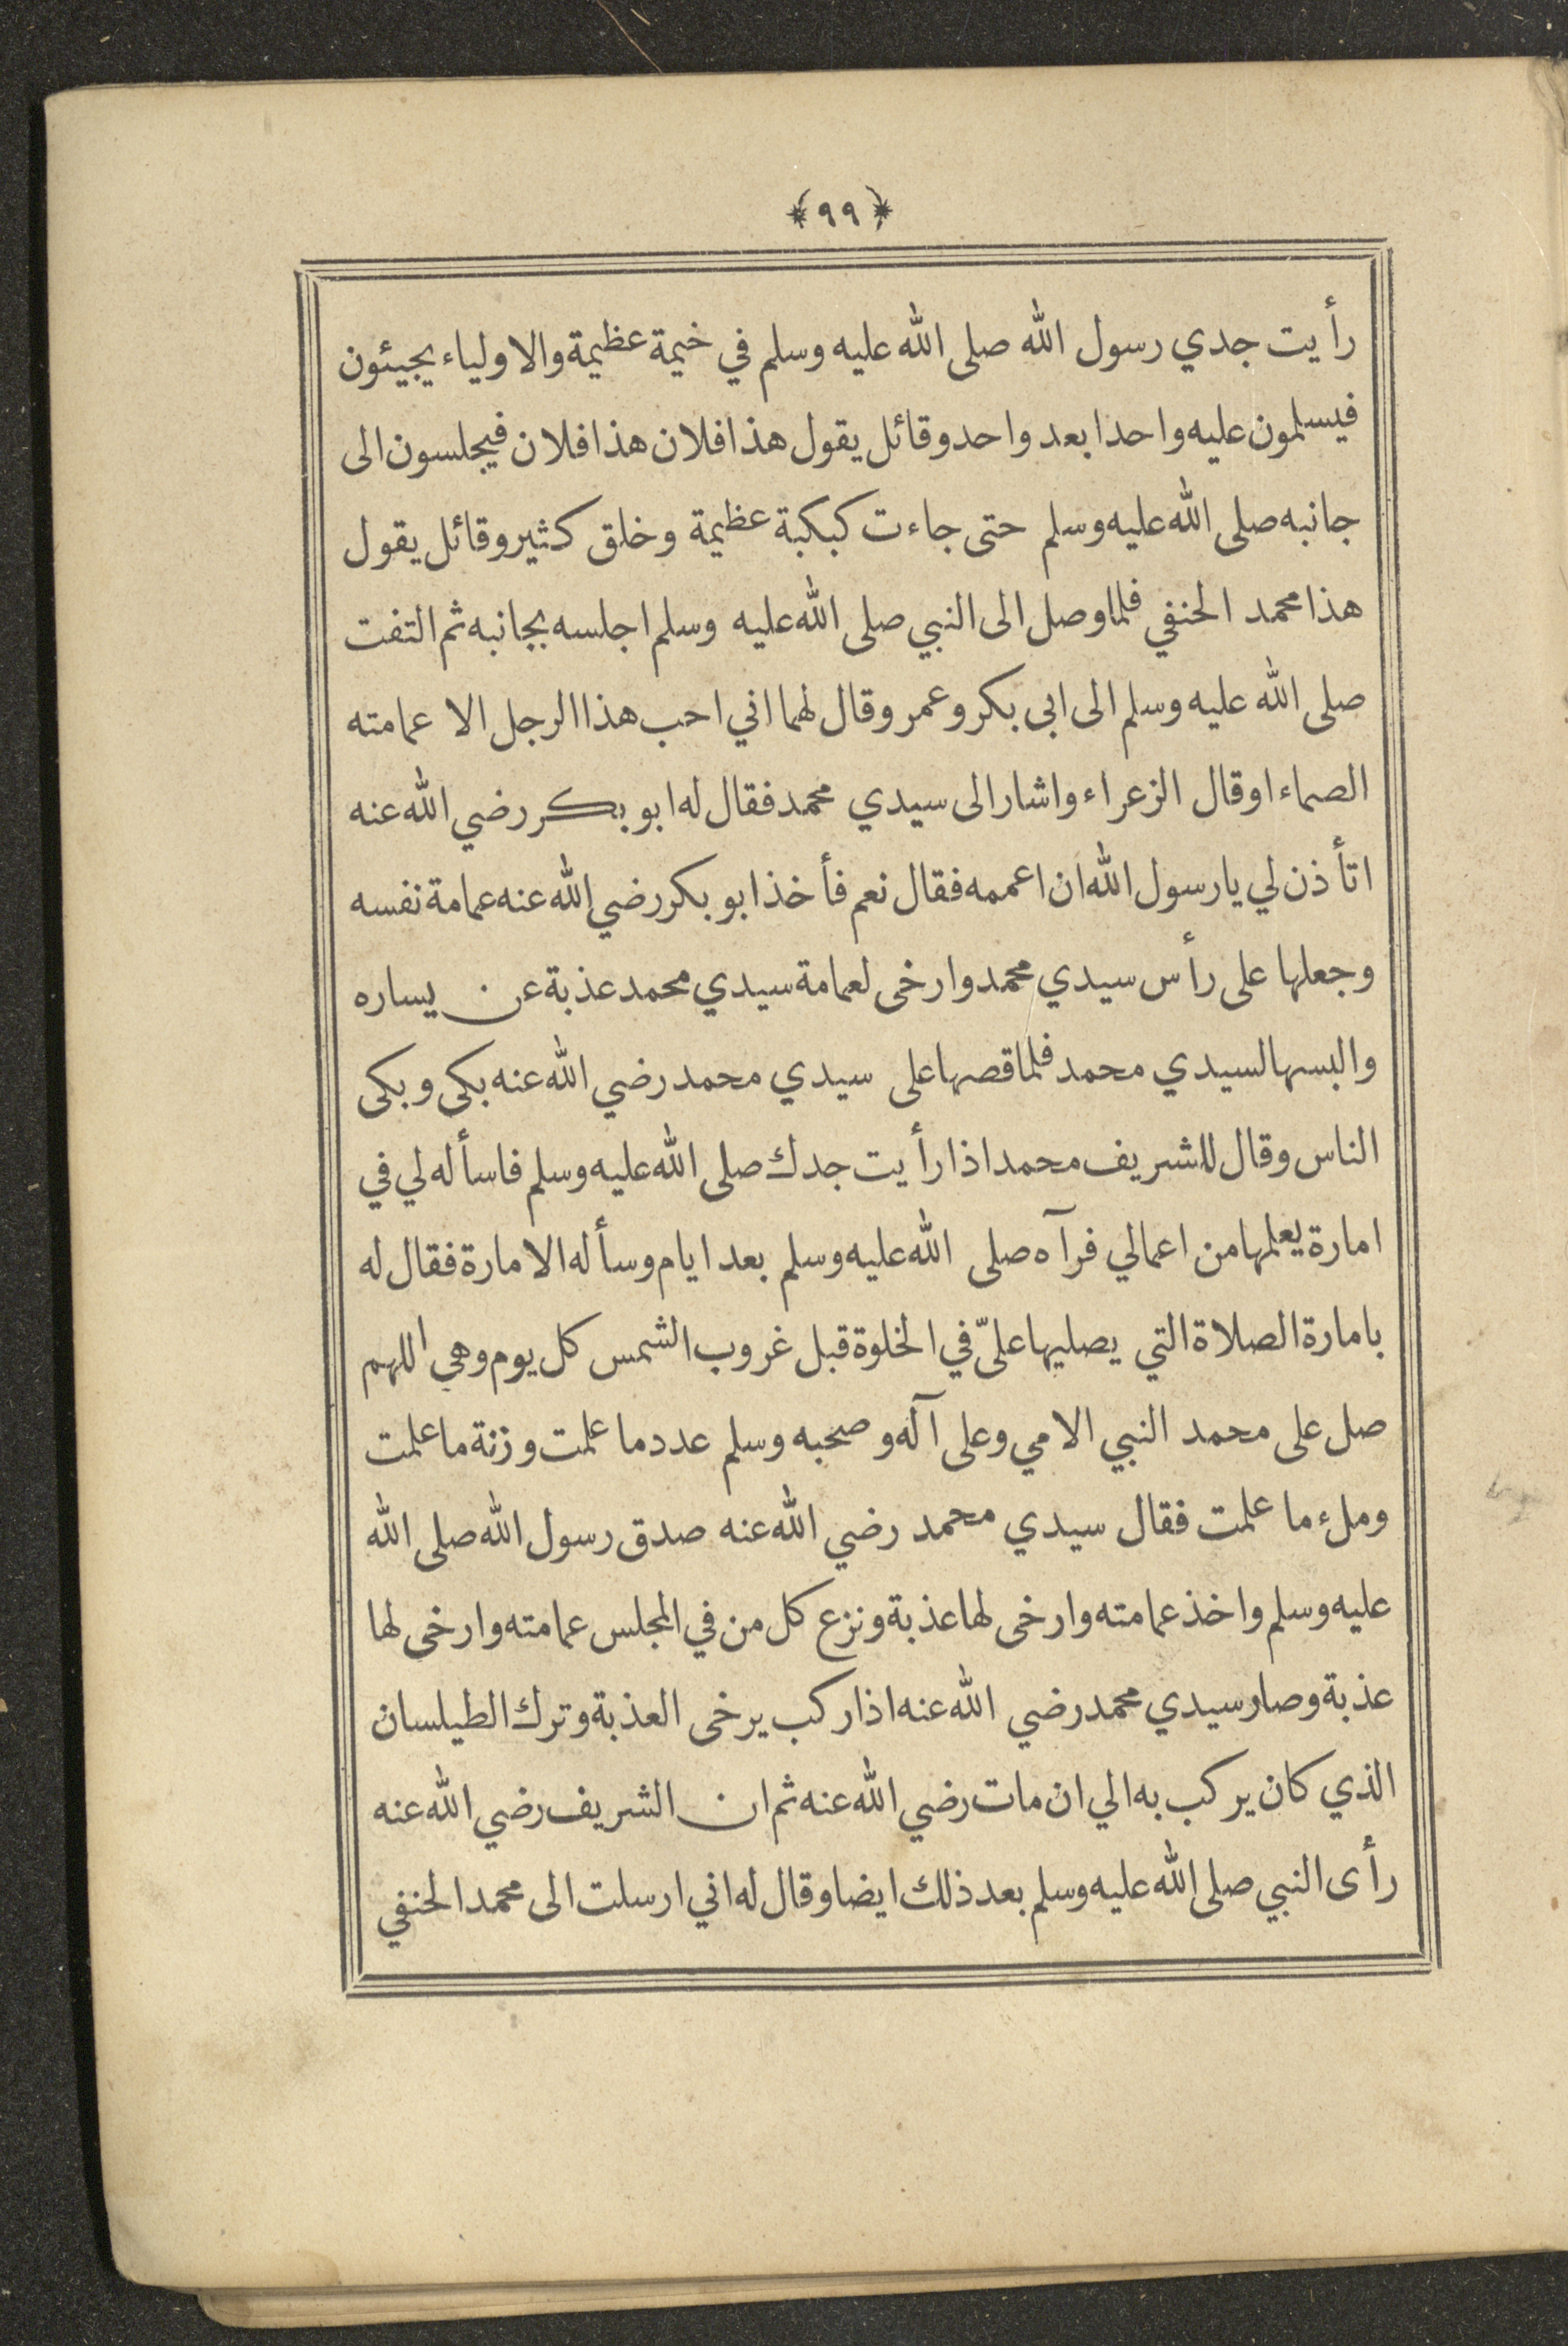 ﴿٩٩﴾
رأيت جدي رسول الله صلى الله عليه وسلم في خيمة عظيمة والاولياء يجيئون
فيسلمون عليه واحدا بعد واحد وقائل يقول هذا فلان هذا فلان فيجلسون الى
جانبه صلى الله عليه وسلم حتى جاءت كبكبة عظيمة وخلق كثير وقائل يقول
هذا محمد الحنفي فلما وصل الى النبي صلى الله عليه وسلم اجلسه بجانبه ثم التفت
صلى الله عليه وسلم الى ابي بكر وعمر وقال لهما اني احب هذا الرجل الا عمامته
الصماء او قال الزعراء واشار الى سيدي محمد فقال له ابو بكر رضي الله عنه
اتأذن لي يا رسول الله ان اعممه فقال نعم فأخذ ابو بكر رضي الله عنه عمامة نفسه
وجعلها على رأس سيدي محمد وارخى لعمامة سيدي محمد عذبة عن يساره
والبسها لسيدي محمد فلما قصها على سيدي محمد رضي الله عنه بكى وبكى
الناس وقال للشريف محمد اذا رأيت جدك صلى الله عليه وسلم فاسأله لي في
امارة يعلمها من اعمالي فرآه صلى الله عليه وسلم بعد ايام وسأله الامارة فقال له
بامارة الصلاة التي يصليها عليّ في الخلوة قبل غروب الشمس كل يوم وهي اللهم
صل على محمد النبي الامي وعلى آله وصحبه وسلم عدد ما علمت وزنة ما علمت
وملء ما علمت فقال سيدي محمد رضي الله عنه صدق رسول الله صلى الله
عليه وسلم واخذ عمامته وارخى لها عذبة ونزع كل من في المجلس عمامته وارخى لها
عذبة وصار سيدي محمد رضي الله عنه اذا ركب يرخى العذبة وترك الطيلسان
الذي كان يركب به الي ان مات رضي الله عنه ثم ان الشريف رضي الله عنه
رأى النبي صلى الله عليه وسلم بعد ذلك ايضا وقال له اني ارسلت الى محمد الحنفي